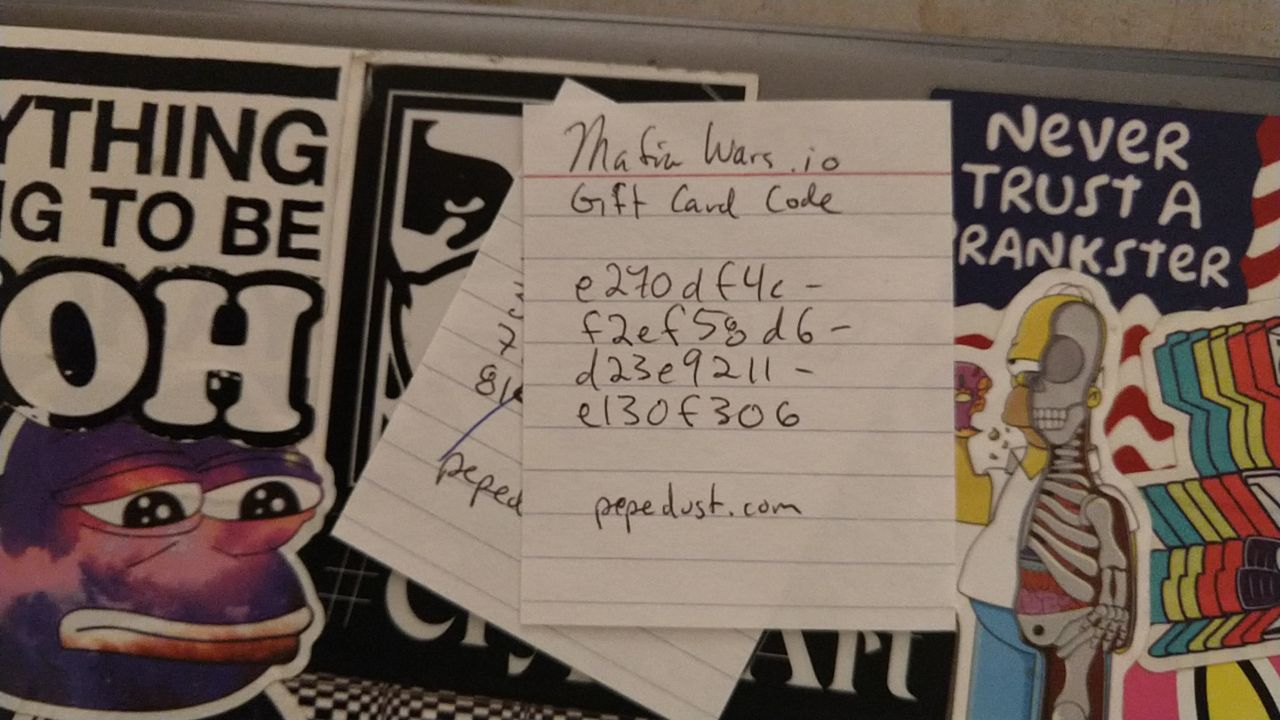 YTHING
G TO BE
OH
Mafia Wars.io
Gift Card Code
e270df4c-
f2ef58d6-
d23e9211-
e130f306
pepedust.com
7
81
peped
#Cry
Art
NEVER
TRUST A
RANKSTER